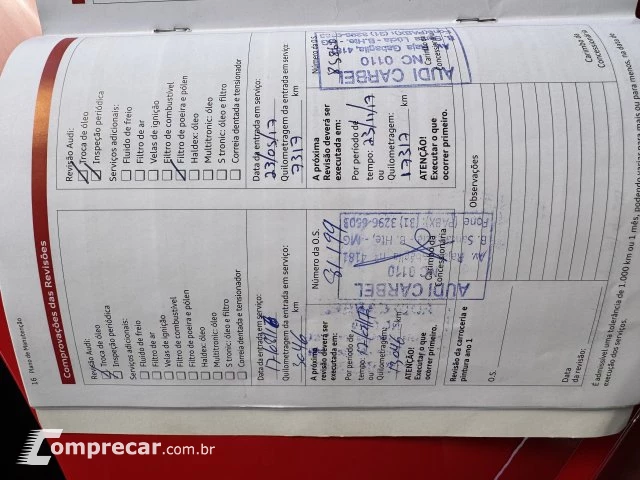 16 Plano de Manutenção
Comprovações das Revisões
Revisão Audi:
Troca de óleo
Inspeção periódica
Serviços adicionais:
Fluido de freio
Filtro de ar
Velas de ignição
Filtro de combustível
Filtro de poeira e pólen
Haldex: óleo
Multitronic: óleo
S tronic: óleo e filtro
Correia dentada e tensionador
Data da entrada em serviço:
Quilometragem da entrada em serviço:
km
Número da O.S.
81.199
A próxima
Revisão deverá ser
executada em:
Por período de
tempo:
ou
Quilometragem:
km
ATENÇÃO!
Executar o que
ocorrer primeiro.
AUDI CARBEL
NC 0110
4181
MG
Fone (PABX): (31) 3296-6603
Carimbo da
Concessionária
Revisão da carroceria e
pintura ano 1
O.S.
Data
da revisão:
Revisão Audi:
Troca de óleo
Inspeção periódica
Serviços adicionais:
Fluido de freio
Filtro de ar
Velas de ignição
Filtro de combustível
Filtro de poeira e pólen
Haldex: óleo
Multitronic: óleo
S tronic: óleo e filtro
Correia dentada e tensionador
Data da entrada em serviço:
23/05/17
Quilometragem da entrada em serviço:
7317 km
Número da O.S.
A próxima
Revisão deverá ser
executada em:
Por período de
tempo: 23/11/17
ou
Quilometragem:
17317 km
ATENÇÃO!
Executar o que
ocorrer primeiro.
AUDI CARBEL
NC 0110
Carimbo da
Concessionária
Observações
Carimbo da
Concessionária
É admissível uma tolerância de 1.000 km ou 1 mês, podendo variar para mais ou para menos, na data de
execução dos serviços.
Comprecar.com.br